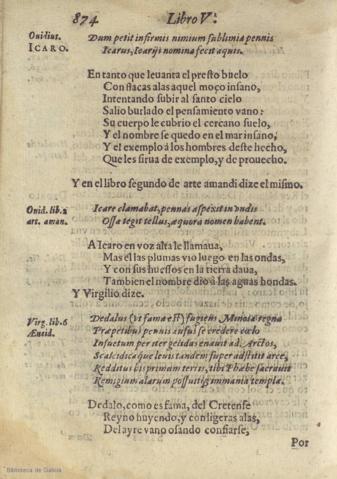 874 Libro V.
Ouidius. Dum petit infirmis nimium sublimia pennis
ICARO. Icarus, Icarijs nomina fecit aquis.
En tanto que leuanta el presto buelo
Con flacas alas aquel moço insano,
Intentando subir al santo cielo
Salio burlado el pensamiento vano:
Su cuerpo le cubrio el cercano suelo,
Y el nombre se quedo en el mar insano,
Y el exemplo á los hombres deste hecho,
Que les sirua de exemplo, y de prouecho.
Y en el libro segundo de arte amandi dize el mismo.
Ouid. lib. 2 Icare clamabat, pennas aspexit in vndis
art. aman. Ossa tegit tellus, aequora nomen habent.
A Icaro en voz alta le llamaua,
Mas el las plumas vio luego en las ondas,
Y con sus huessos en la tierra daua,
Tambien el nombre dio à las aguas hondas.
Y Virgilio dize.
Virg. lib. 6 Dedalus (vt fama est) fugiens Minoia regna
Æneid. Præpetibus pennis ausus se credere cœlo
Insuetum per iter gelidas enauit ad Arctos,
Scalcidica que leuis tandem super adstitit arce,
Redditus his primum terris, tibi Phæbe sacrauit
Remigium alarum possuitq; immania templa.
Dedalo, como es fama, del Cretense
Reyno huyendo, y con ligeras alas,
Del ayre vano osando confiarse,
Por
Biblioteca de Galicia